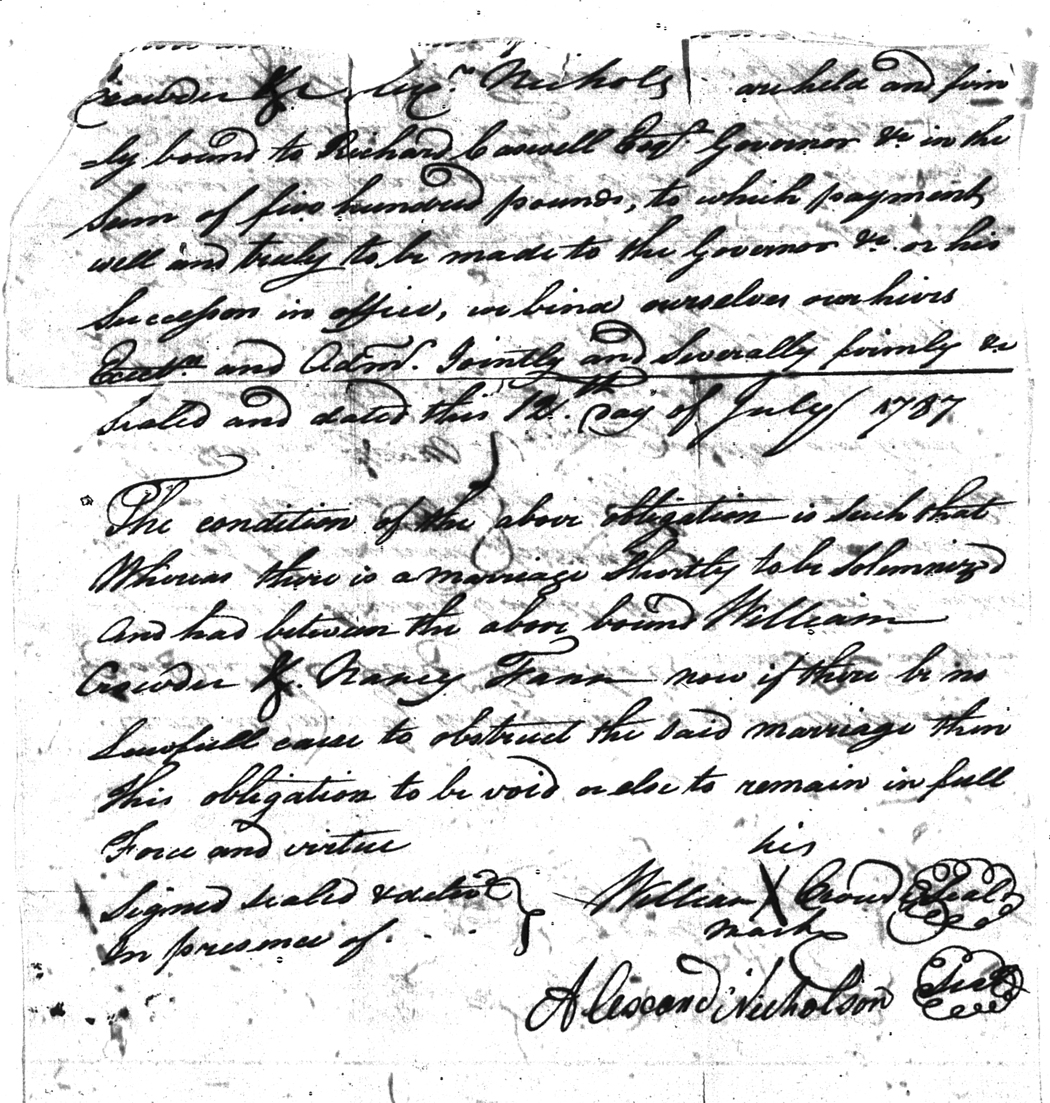 Crowder & Alexr. Nichols are held and firm
-ly bound to Richard Caswell Esqr. Governor &c in the
Sum of five hundred pounds, to which payment
well and truly to be made to the Governor &c or his
Successors in office, we bind ourselves our heirs
Exetrs and Admrs. Jointly and Severally firmly &c
Sealed and dated this 12.th Day of July 1787
The condition of the above obligation is such that
Whereas there is a marriage Shortly to be Solemnized
And had between the above bound William
Crowder &. Nancy Fann now if there be no
Lawfull cause to obstruct the said marriage then
this obligation to be void or else to remain in full
Force and virtue
his
Signed sealed & deliv'd William X Crowder Seal
mark
In presence of
Alexand' Nicholson Seal